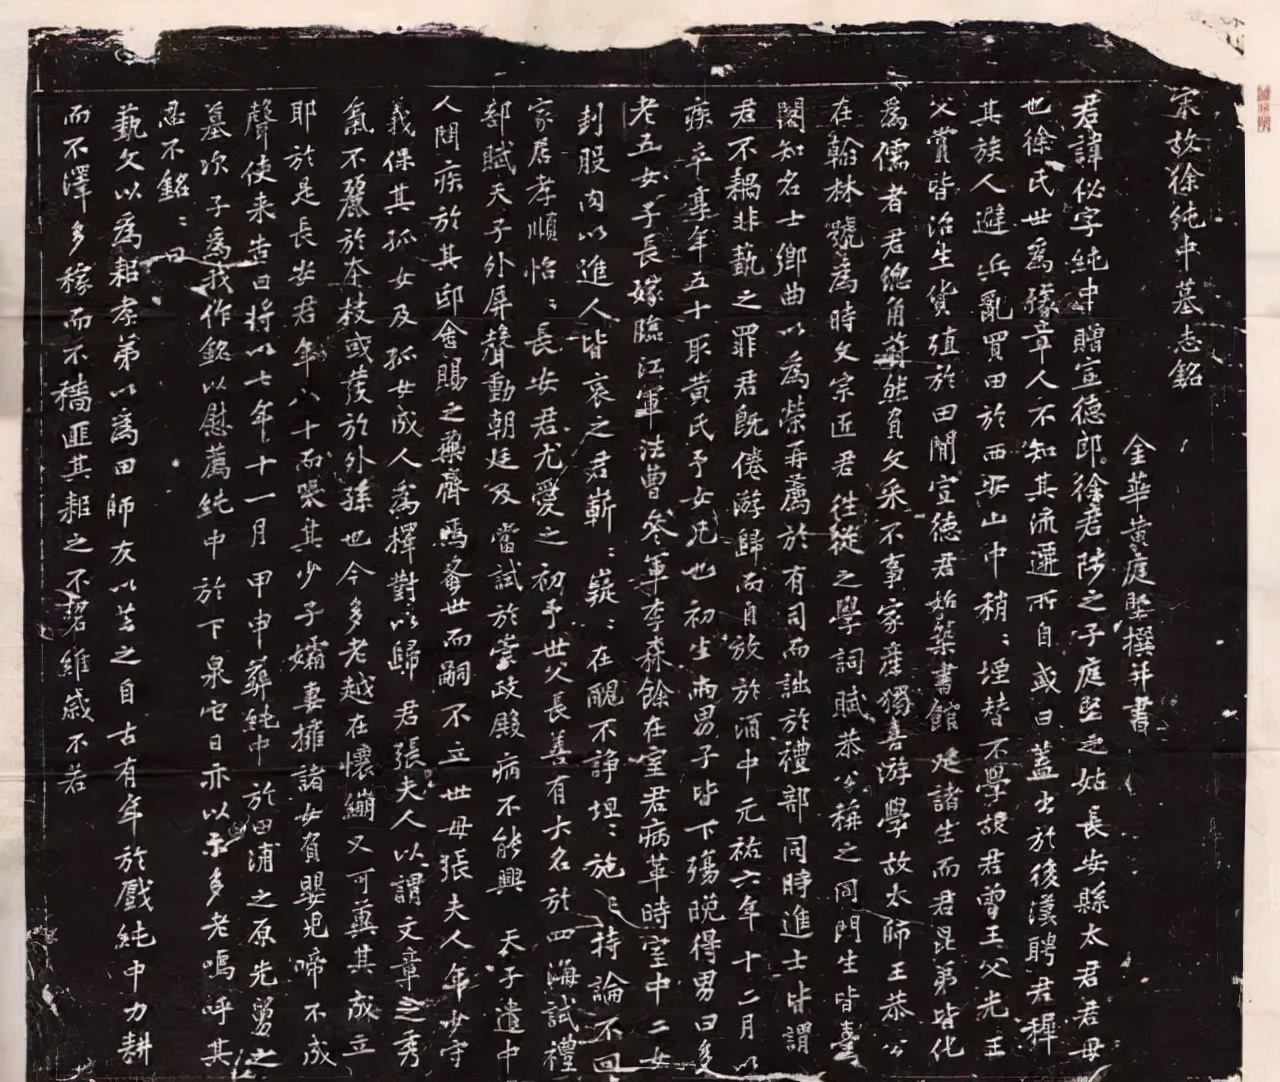 宋故徐純中墓志銘
金華黃庭堅撰并書
君諱佖字純中贈宣德郎徐君陟之子庭堅之姑長安縣太君君母
也徐氏世為豫章人不知其流遷所自或曰蓋出於後漢聘君穉
其族人避兵亂買田於西安山中稍〻堙替不學故君曾王父光王
父賞皆治生貨殖於田間宣德君始築書館延諸生而君昆弟皆化
為儒者君總角蔚然有文采不事家產獨喜游學故太師王恭公
在翰林號為時文宗匠君往從之學詞賦恭公稱之同門生皆臺
閣知名士鄉曲以為榮再薦於有司而詘於禮部同時進士皆謂
君不耦非藝之罪君既倦游歸而自放於酒中元祐六年十二月以
疾卒享年五十取黃氏予女兄也初生兩男子皆下殤晚得男曰多
老五女子長嫁臨江軍法曹叅軍李森餘在室君病革時室中二女
刲股肉以進人皆哀之君嶄〻嶷〻在醜不諍坦〻施〻持論不回
家居孝順怡〻長安君尤愛之初予世父長善有大名於四海試禮
部賦天子外屏聲動朝廷及當試於崇政殿病不能興 天子遣中
人問疾於其邸舍賜之藥齊嗚蚤世而嗣不立世母張夫人年少守
義保其孤女及孤女成人為擇對以歸 君張夫人以謂文章之秀
氣不麗於本枝或茂於外孫也今多老越在懷繃又可冀其成立
耶於是長安君年八十而哭其少子孀妻擁諸女負嬰兒啼不成
聲使来告曰將以七年十一月甲申葬純中於田浦之原先塋之
墓次子為我作銘以慰薦純中於下泉它日亦以示多老嗚呼其
忍不銘〻曰
藝文以為耜孝弟以為田師友以芸之自古有年於戲純中力耕
而不澤多稼而不穡匪其耜之不畟維歲不若